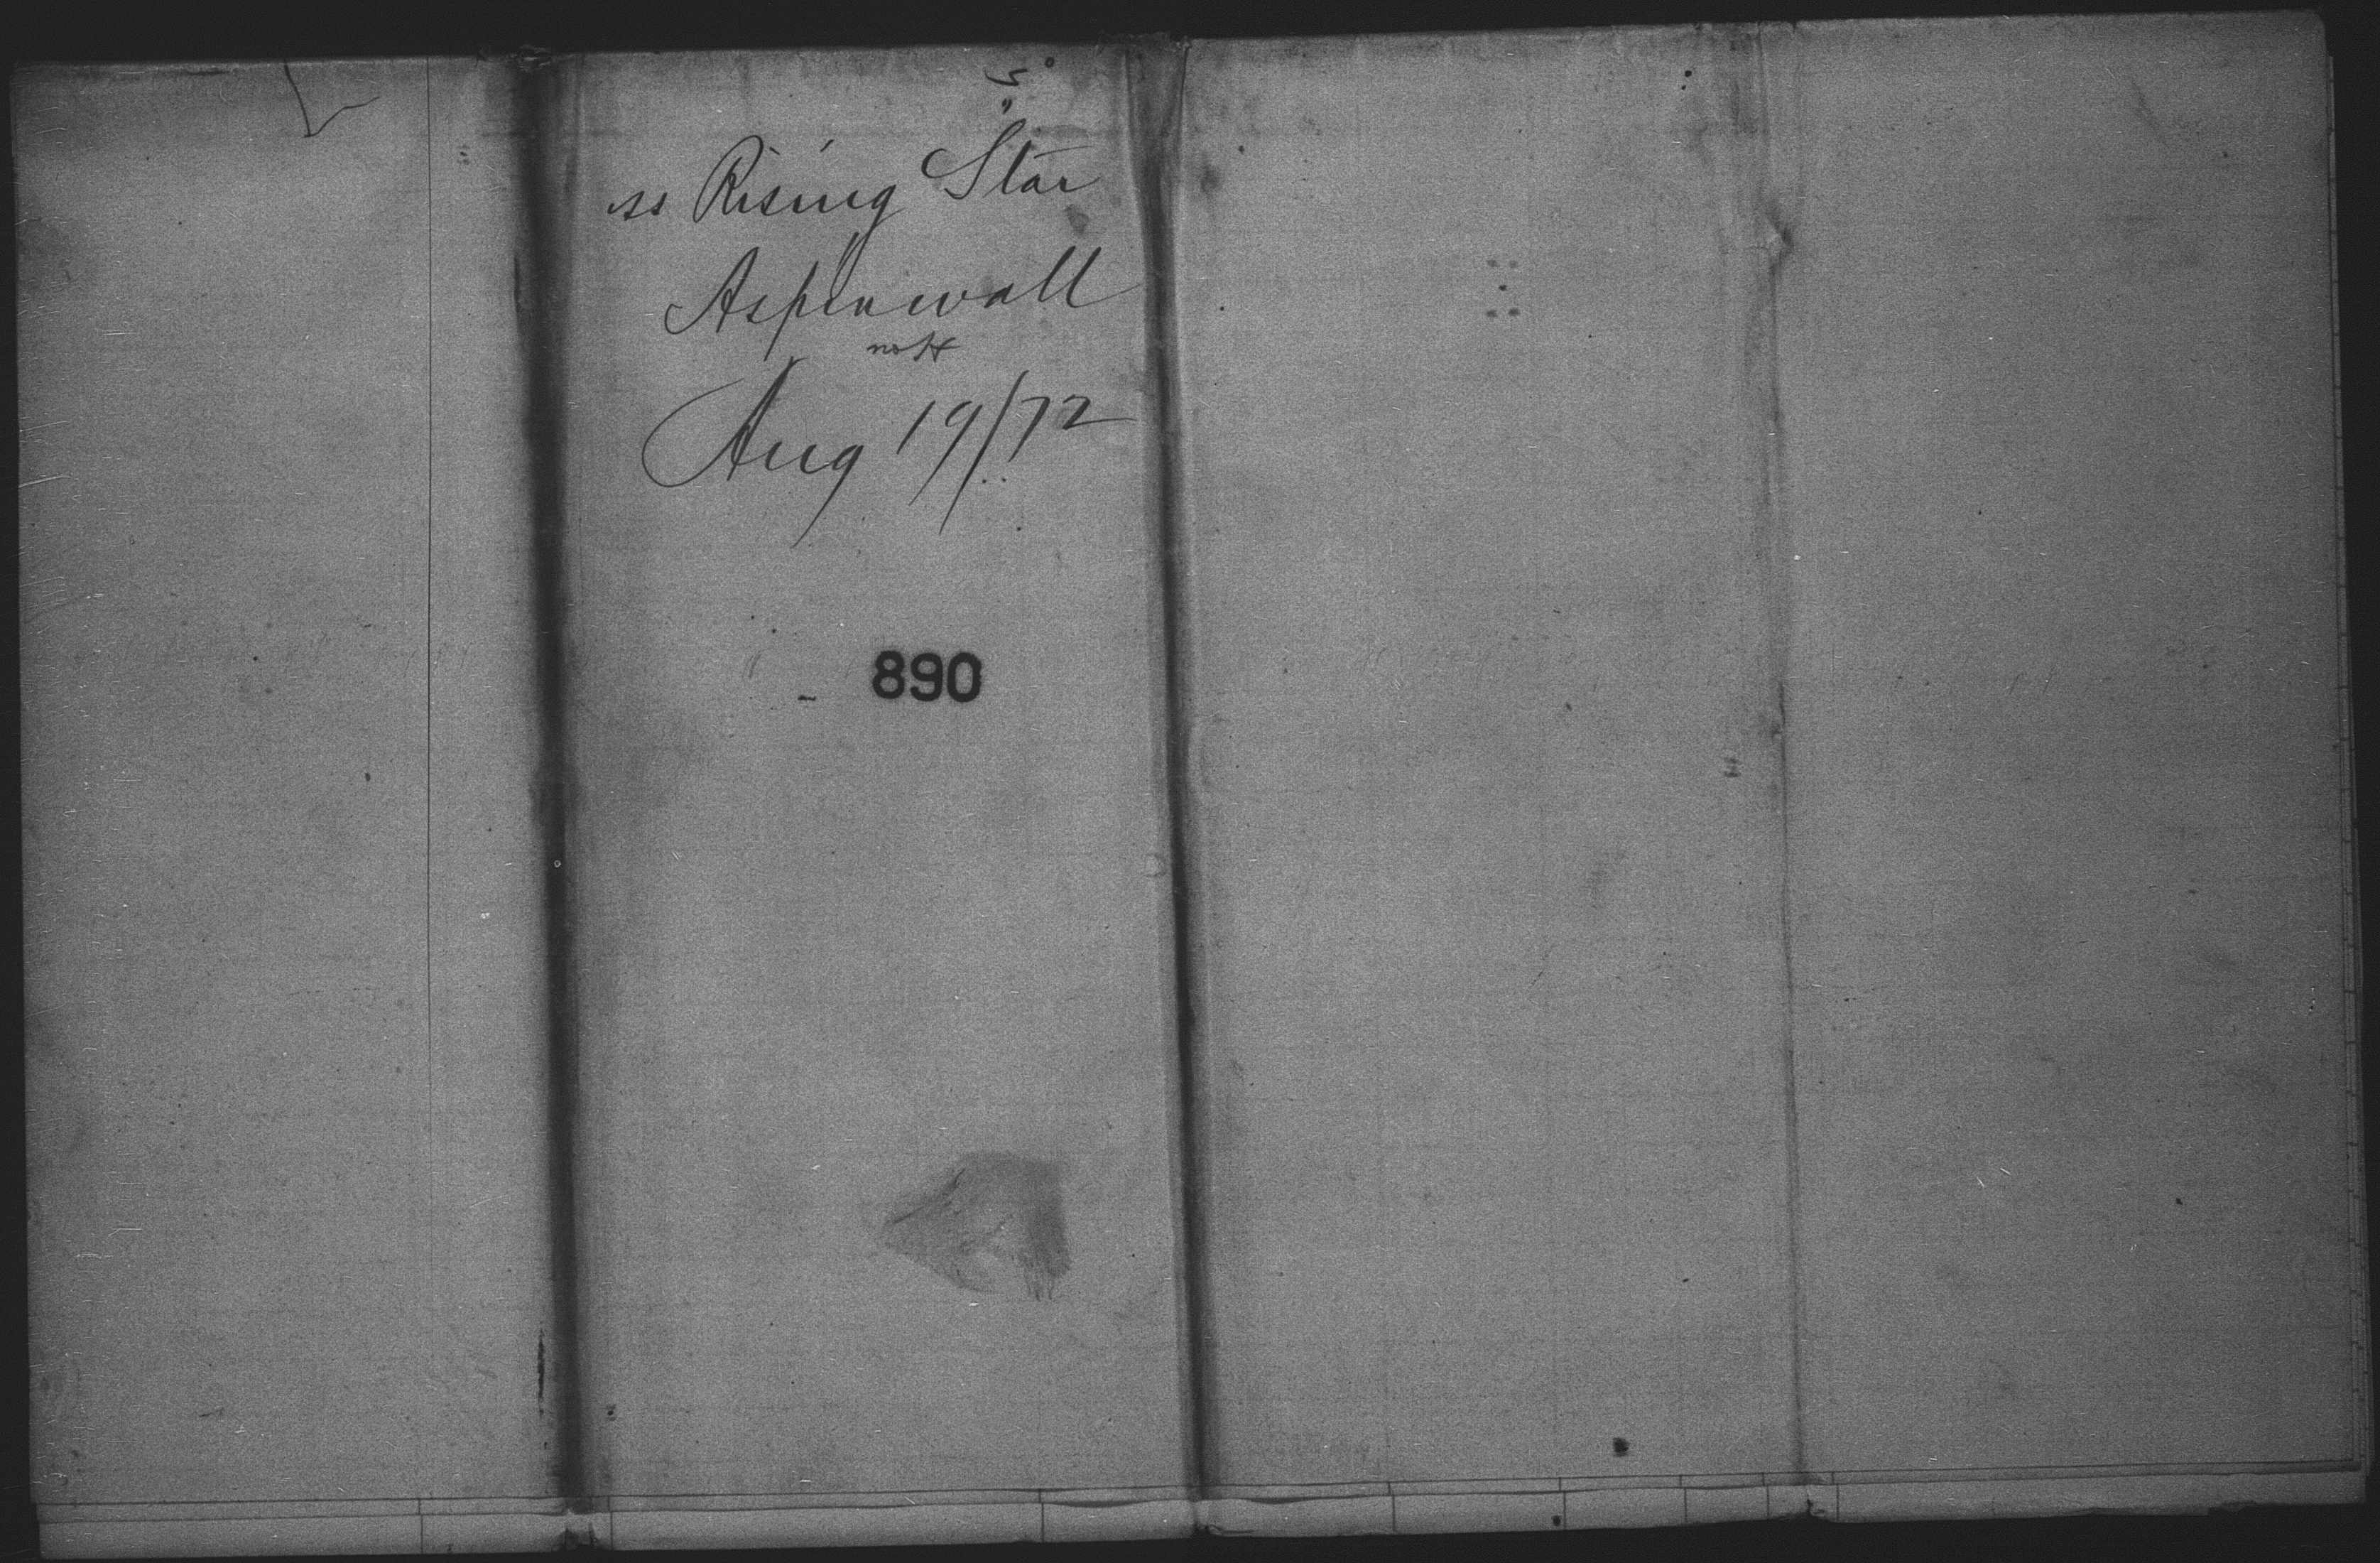 ss Rising Star
Aspinwall
Aug 19/72
890